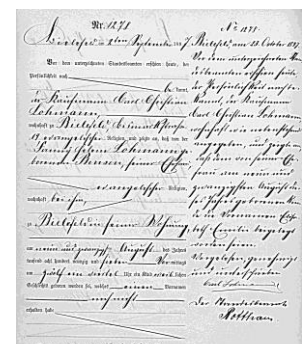 Nr. 1271
Bielefeld, am 2ten September 1887
Vor dem unterzeichneten Standesbeamten erschien heute, der
Persönlichkeit nach
be kannt,
der Kaufmann Carl Christian
Lohmann,
wohnhaft zu Bielefeld,
18, evangelischer Religion, und zeigte an, daß von der
Lohmann ge-
borenen
evangelischer Religion,
wohnhaft bei ihm,
zu Bielefeld in seiner Wohnung
am neun und zwanzigsten August des Jahres
tausend acht hundert achtzig und sieben Vormittags
um zwölf ein viertel Uhr ein Kind weiblichen
Geschlechts geboren worden sei, welches einen Vornamen
noch nicht
erhalten habe.
No 1271.
Bielefeld, am 28 October 1887
Vor dem unterzeichneten Stan-
desbeamten erschien heute
der Persönlichkeit nach be-
kannt, der Kaufmann
Carl Christian Lohmann
wohnhaft wie nebenstehend
angegeben, und zeigte an,
daß dem von seiner Ehe-
frau am neun und
zwanzigsten August die-
ses Jahres geborenen Kin-
de die Vornamen
Emilie beigelegt
worden seien.
Vorgelesen, genehmigt
und unterschrieben
Carl Lohmann
Der Standesbeamte